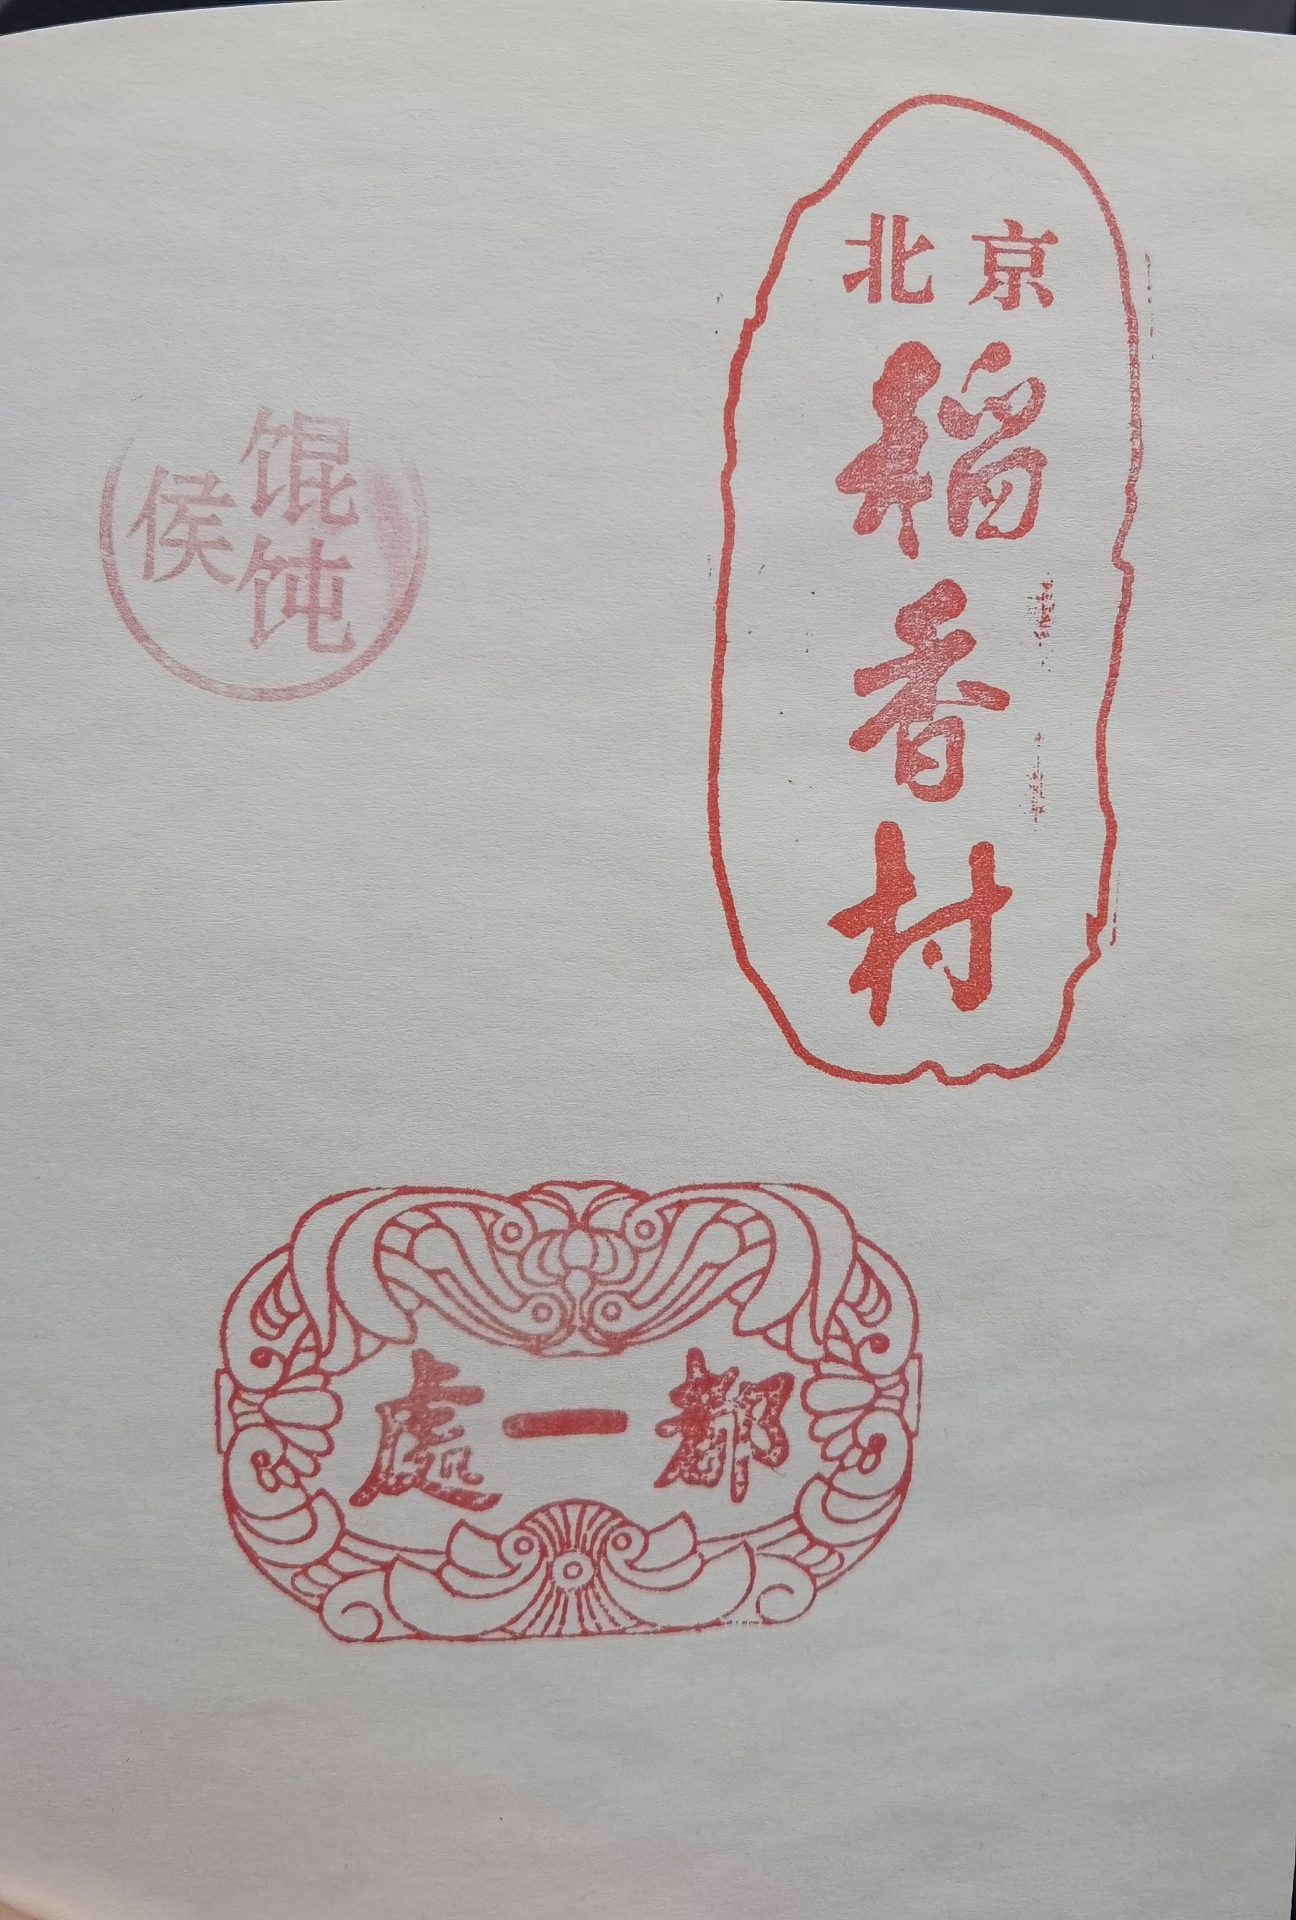 北京
稻香村
馄饨
侯
處一都